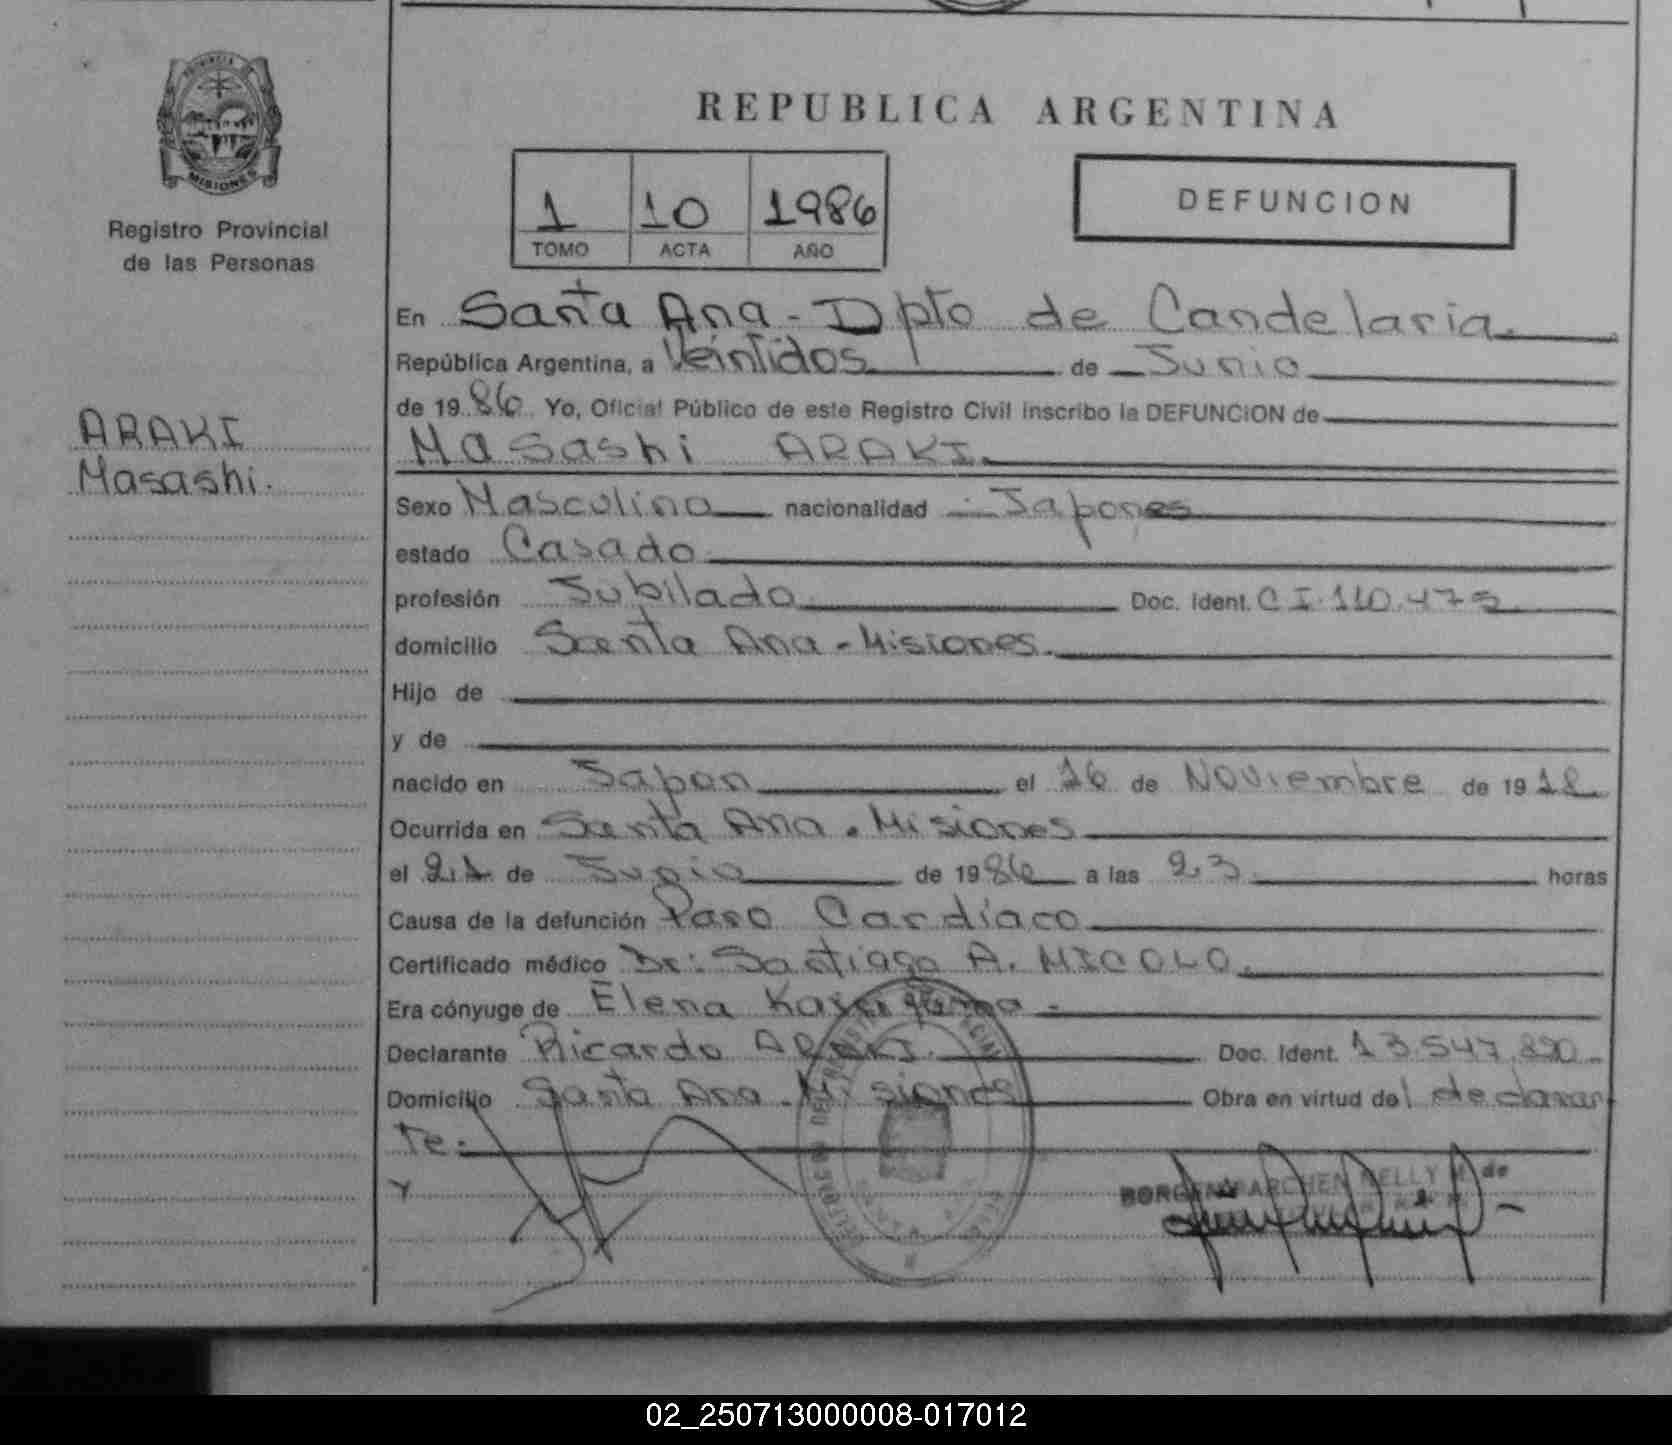 PROVINCIA DE
MISIONES
Registro Provincial
de las Personas
ARAKI
Masashi.
REPUBLICA ARGENTINA
1 10 1986
TOMO ACTA AÑO
DEFUNCION
En Santa Ana - Dpto de Candelaria.
República Argentina, a Veintidos de Junio
de 1986 Yo, Oficial Público de este Registro Civil inscribo la DEFUNCION de
Masashi ARAKI.
Sexo Masculino nacionalidad Japones
estado Casado
profesión Jubilado Doc. Ident. C I. 110.475
domicilio Santa Ana - Misiones.
Hijo de
y de
nacido en Japon el 16 de Noviembre de 1918
Ocurrida en Santa Ana. Misiones
el 21 de Junio de 1986 a las 23 horas
Causa de la defunción Paro Cardíaco
Certificado médico Dr: Santiago A. MICOLO.
Era cónyuge de Elena
Declarante Ricardo ARAKI. Doc. Ident. 13.547.890
Domicilio Santa Ana - Misiones Obra en virtud del declaran
te.
Y
NELLY M. de
02_250713000008-017012